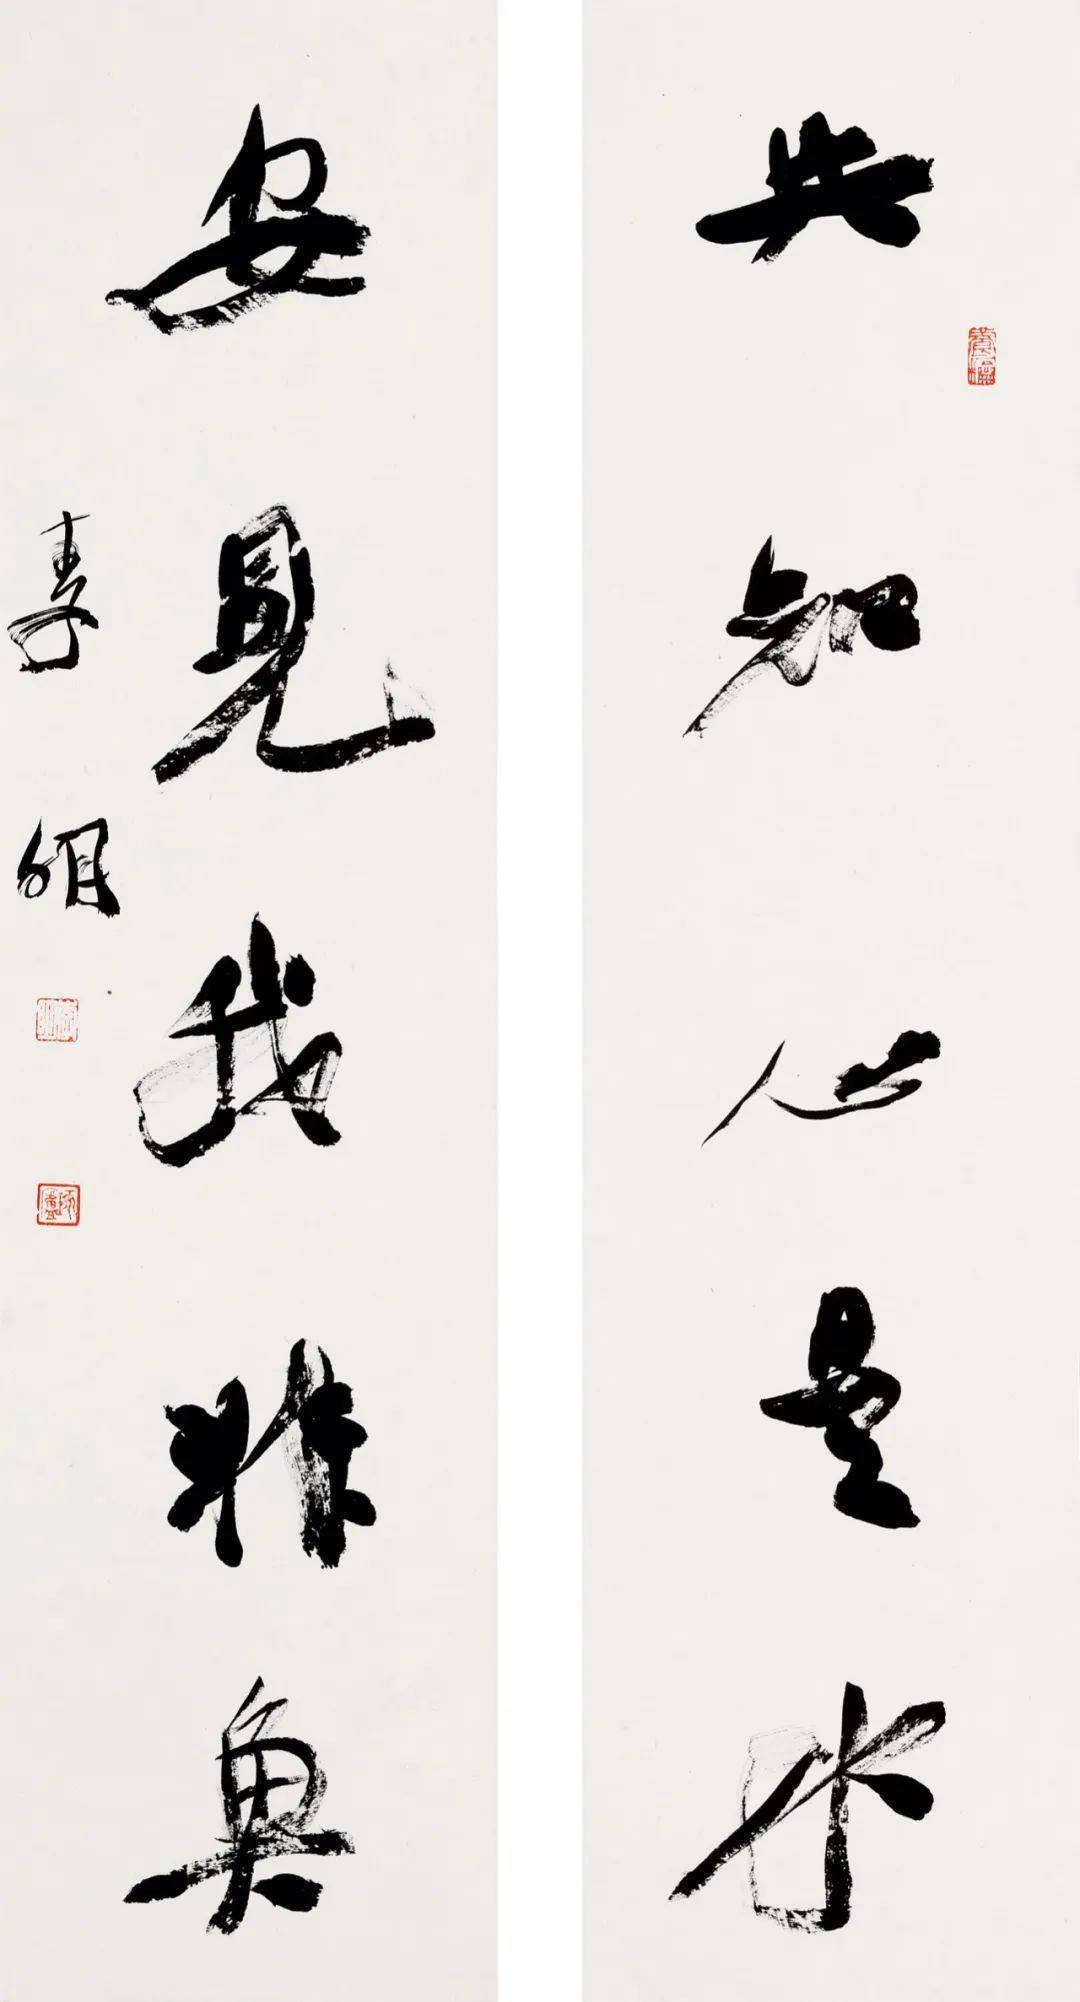 共知心是水
安見我非魚
孝明